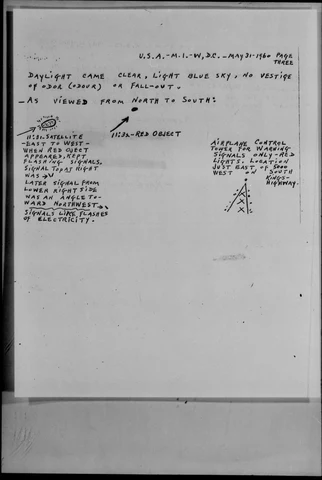 U.S.A.-M.I.-W,D.C.-MAY 31-1960 PAGE
THREE
DAYLIGHT CAME CLEAR, LIGHT BLUE SKY, NO VESTIGE
OF ODOR (ODOUR) OR FALL-OUT.
-AS VIEWED FROM NORTH TO SOUTH:
11:31. SATELLITE
-EAST TO WEST-
WHEN RED OJECT
APPEARED, KEPT
FLASHING SIGNALS.
SIGNAL TOP AT RIGHT
WAS →
LATER SIGNAL FROM
LOWER RIGHT SIDE
WAS AN ANGLE TO-
WARD NORTHWEST→
SIGNALS LIKE FLASHES
OF ELECTRICITY.
11:32-RED OBJECT
AIRPLANE CONTROL
TOWER FOR WARNING
SIGNALS ONLY-RED
LIGHTS. LOCATION
JUST EAST OF 5000
WEST ON SOUTH
KINGS-
HIGHWAY.